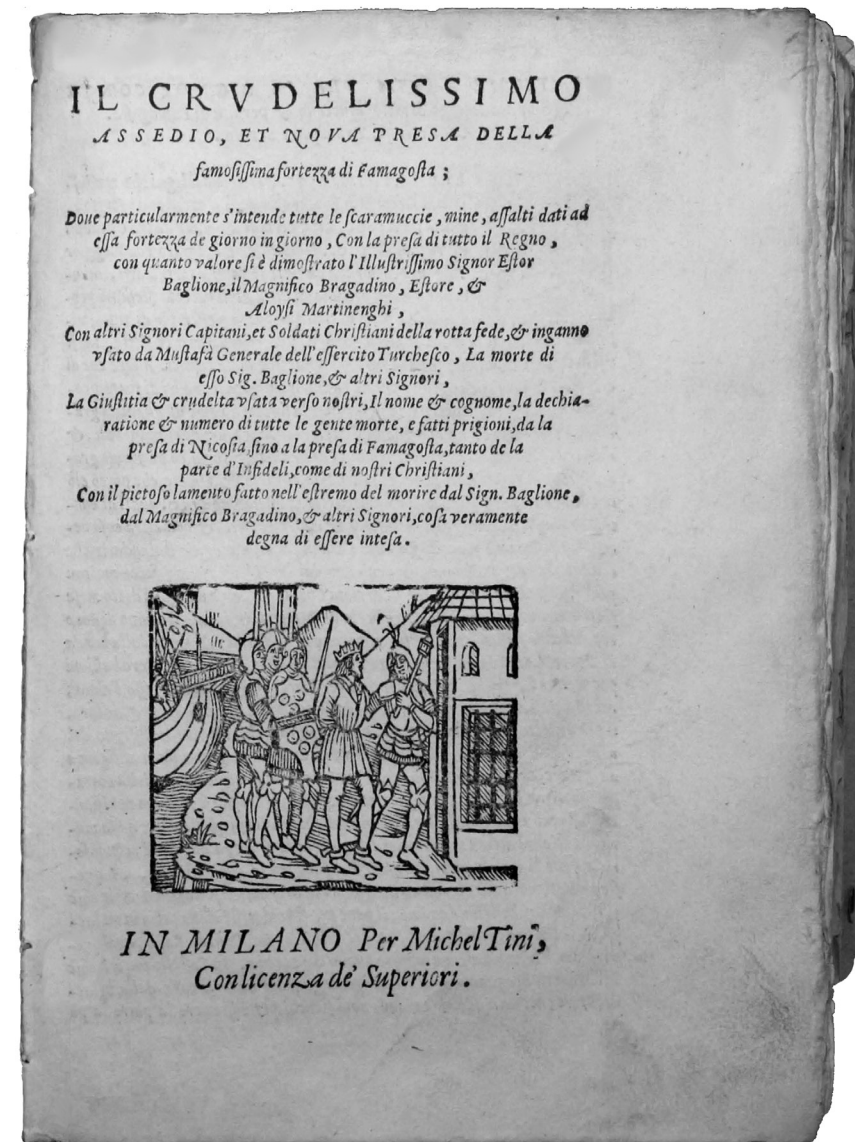 IL CRVDELISSIMO
ASSEDIO, ET NOVA PRESA DELLA
famosiſſima fortezza di Famagoſta ;
Doue particularmente s'intende tutte le ſcaramuccie, mine, aſſalti dati ad
eſſa fortezza de giorno in giorno, Con la preſa di tutto il Regno,
con quanto valore ſi è dimoſtrato l'Illuſtriſſimo Signor Eſtor
Baglione, il Magnifico Bragadino, Eſtore, &
Aloyſi Martinenghi,
Con altri Signori Capitani, et Soldati Chriſtiani della rotta fede, & inganno
vſato da Muſtafà Generale dell'eſſercito Turcheſco, La morte di
eſſo Sig. Baglione, & altri Signori,
La Giuſtitia & crudelta vſata verſo noſtri, Il nome & cognome, la dechia-
ratione & numero di tutte le gente morte, e fatti prigioni, da la
preſa di Nicoſia, ſino a la preſa di Famagoſta, tanto de la
parte d'Infideli, come di noſtri Chriſtiani,
Con il pietoſo lamento fatto nell'eſtremo del morire dal Sign. Baglione,
dal Magnifico Bragadino, & altri Signori, coſa veramente
degna di eſſere inteſa.
IN MILANO Per Michel Tini,
Con licenza de' Superiori.